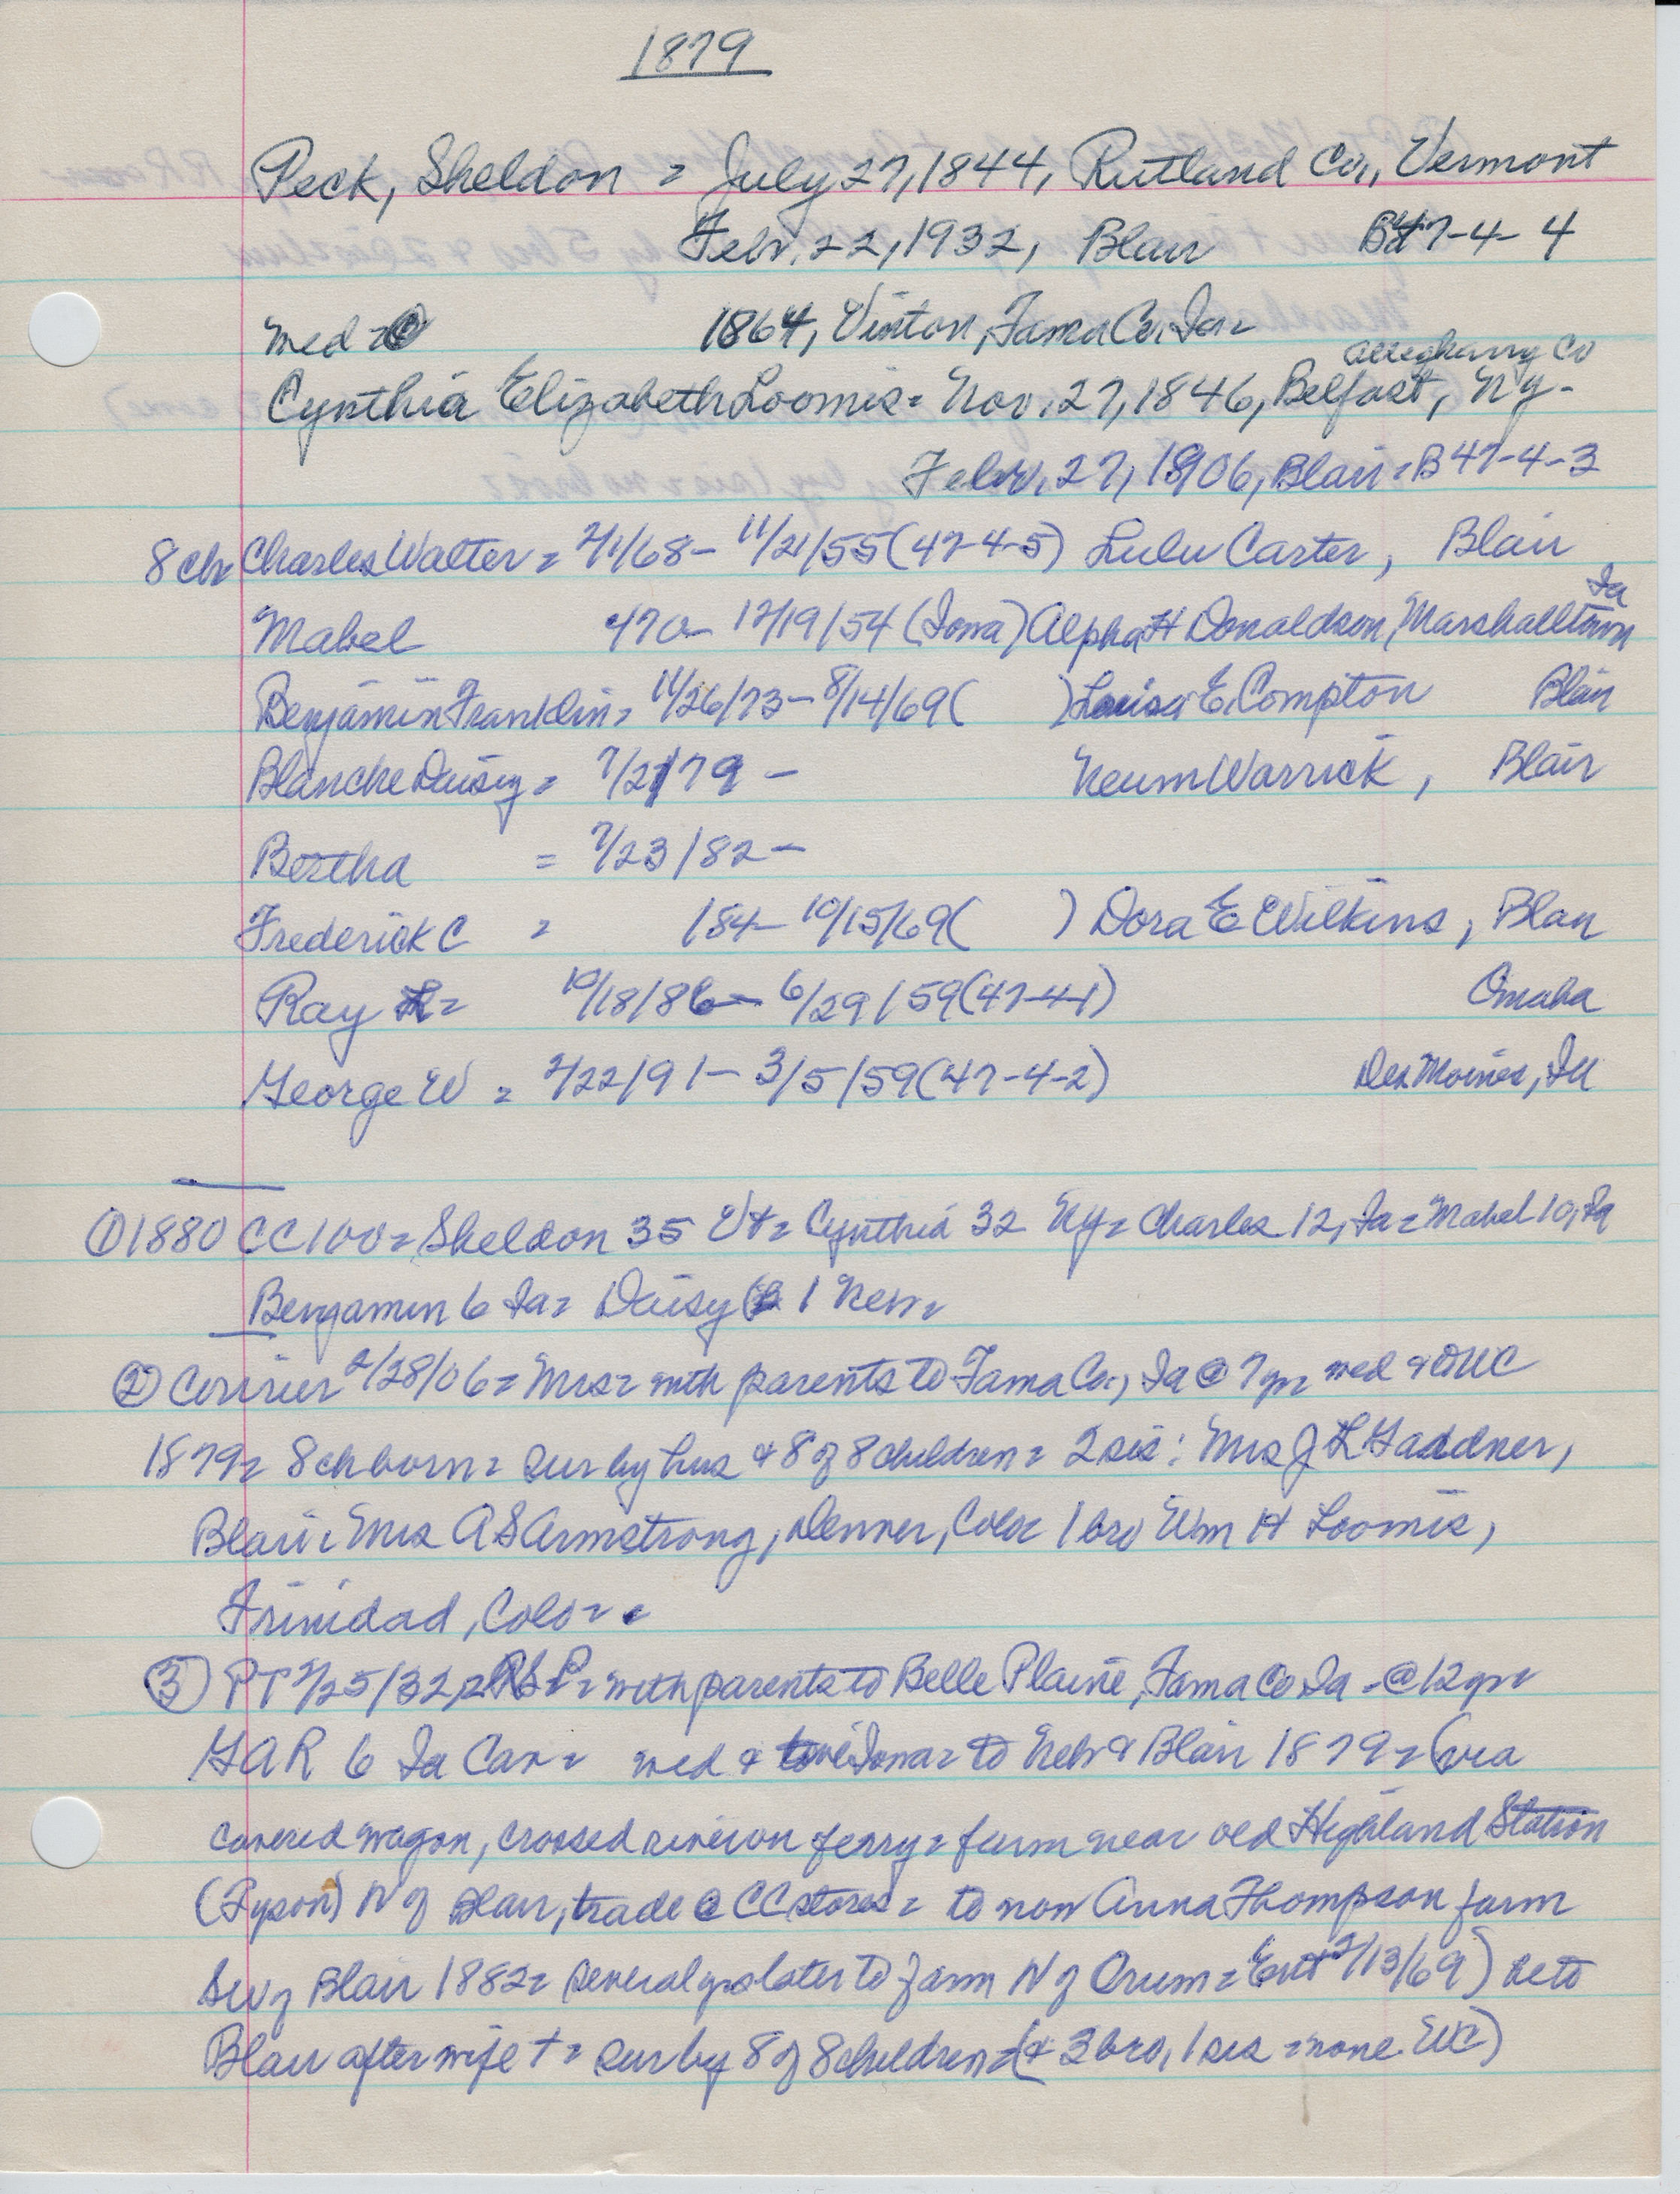 1879
Peck, Sheldon = July 27, 1844, Rutland Co., Vermont
Febr. 22, 1932, Blair B47-4-4
med = 1864, Vinton, Tama Co, Ia =
Alleghany Co
Cynthia Elizabeth Loomis = Nov. 27, 1846, Belfast, Ny -
Febr. 27, 1906, Blair = B47-4-3
8 chr Charles Walter = 2/1/68 - 11/21/55 (47-4-5) Lulu Carter, Blair
Mabel 4/70 - 12/19/54 (Iowa) Alpha H Donaldson, Marshalltown Ia
Benjamin Franklin = 11/26/73 - 8/14/69 ( ) Louisa E Compton Blair
Blanche Daisy = 7/21/79 - Neum Warrick, Blair
Bertha = 7/23/82 -
Frederick C = /84 - 10/15/69 ( ) Dora E Wilkins, Blair
Ray = 10/18/86 - 6/29/59 (47-4-1) Omaha
George W = 2/22/91 - 3/5/59 (47-4-2) Des Moines, Ia
① 1880 CC 100 = Sheldon 35 Vt = Cynthia 32 Ny = Charles 12, Ia = Mabel 10, Ia
Benjamin 6 Ia = Daisy 1 Nebr =
② Courier 2/28/06 = Mrs = with parents to Tama Co., Ia @ 7 yr = med & to WC
1879 = 8 ch born = sur by hus & 8 of 8 children = 2 sis: Mrs J L Gaddner,
Blair = Mrs A S Armstrong, Denver, Colo = 1 bro Wm H Loomis,
Trinidad, Colo =
③ PT 2/25/32, = with parents to Belle Plaine, Tama Co Ia - @ 12 yr =
GAR 6 Ia Cav = med & Iowa = to Nebr & Blair 1879 = (via
covered wagon, crossed river on ferry = farm near old Highland Station
(Tyson) N of Blair, trade @ CC stores = to now Anna Thompson farm
SW of Blair 1882 = several yrs later to farm N of Orum = Ent 2/13/69) re to
Blair after wife † = sur by 8 of 8 children = (& 3 bro, 1 sis = none WC)